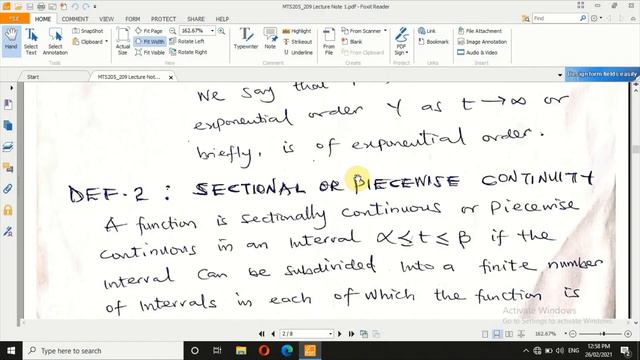 MTS205_209 Lecture Note 1.pdf - Foxit Reader
Hand
Select Text
Select Annotation
SnapShot
Clipboard
Bookmark
Actual Size
Fit Page
Fit Width
Fit Visible
162.67%
Rotate Left
Rotate Right
Typewriter
Note
Highlight
Strikeout
Underline
From Scanner
Blank
From Clipboard
PDF Sign
Link
Bookmark
File Attachment
Image Annotation
Audio & Video
Start
MTS205_209 Lecture Not...
Design form fields easily
We say that
exponential order γ as t → ∞ or
briefly, is of exponential order.
DEF. 2 : SECTIONAL OR PIECEWISE CONTINUITY
A function is sectionally continuous or piecewise
continuous in an interval α ≤ t ≤ β if the
interval can be subdivided into a finite number
of intervals in each of which the function is
Activate Windows
Go to Settings to activate Windows.
2 / 8
162.67%
Type here to search
ENG
12:58 PM
26/02/2021